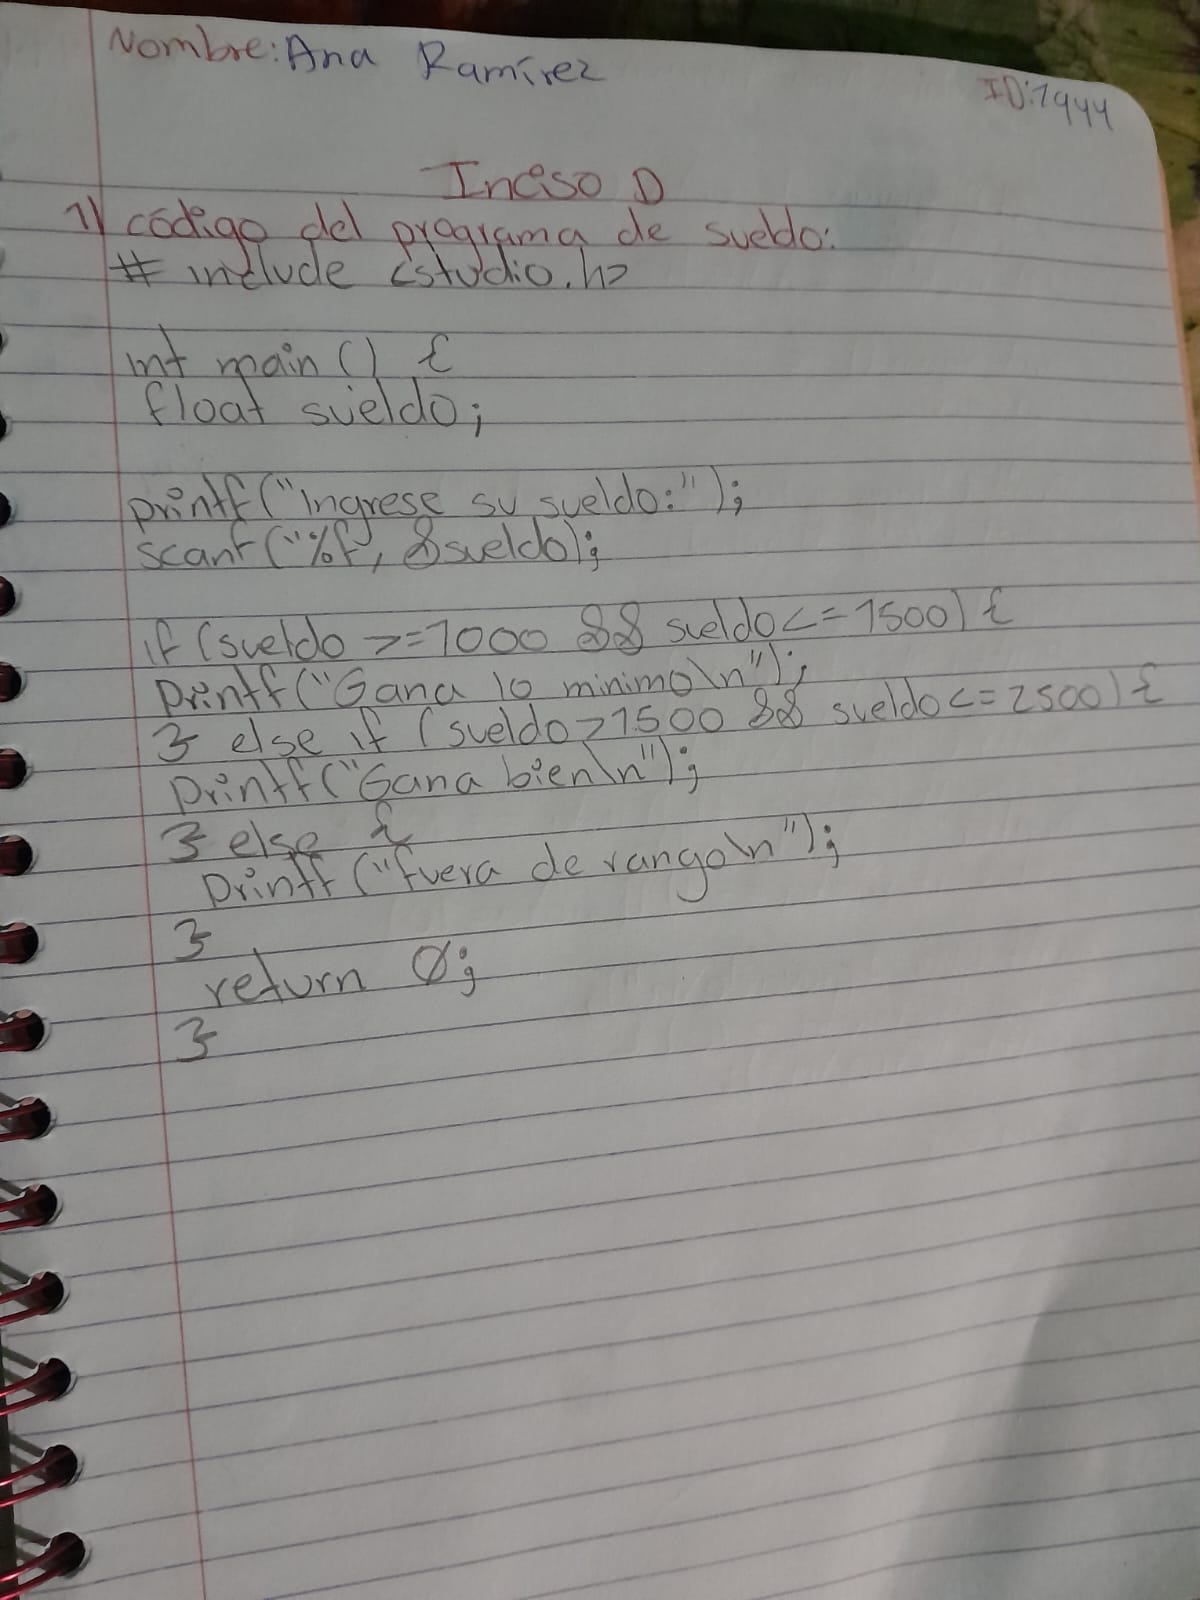 Nombre: Ana Ramírez
ID:1944
Inciso D
1) código del programa de sueldo:
# include <studio.h>
int main () {
float sueldo;
printf("Ingrese su sueldo:");
scanf("%f, &sueldo);
if (sueldo >=1000 && sueldo<=1500) {
printf("Gana lo minimo\n");
} else if (sueldo>1500 && sueldo<=2500) {
printf("Gana bien\n");
} else {
printf("fuera de rango\n");
}
return 0;
}